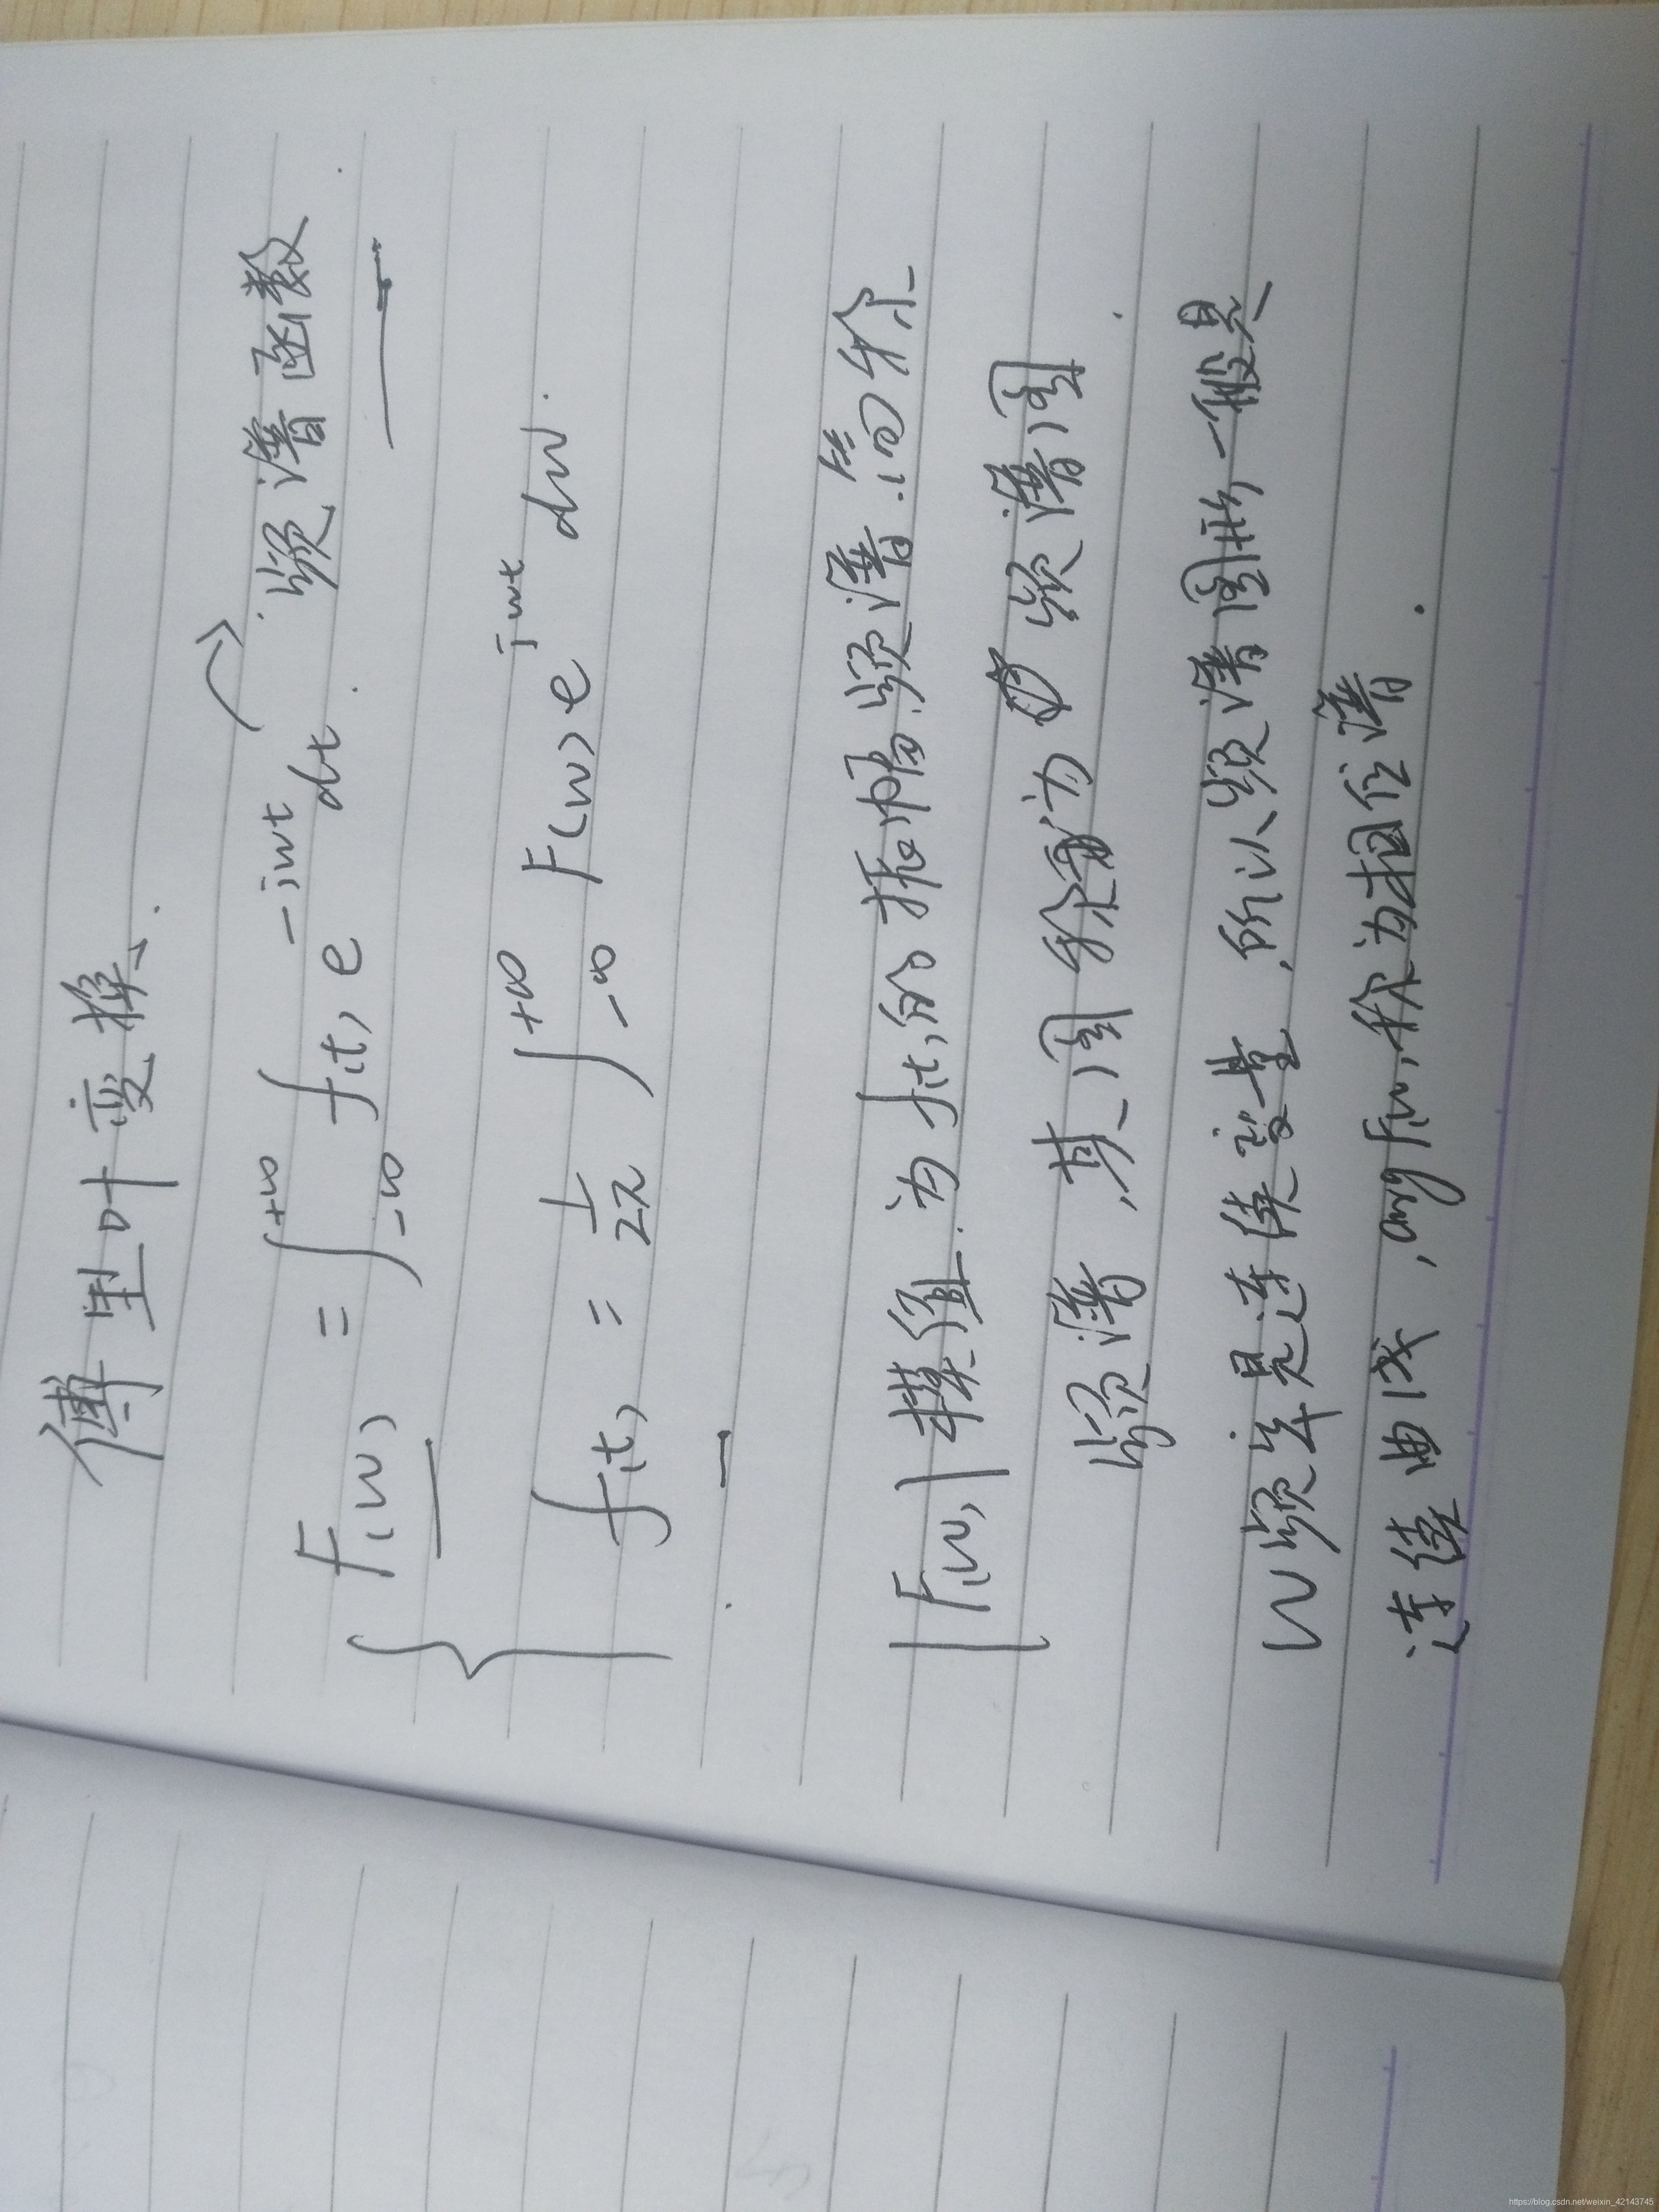 傅里叶变换.
F(w) = ∫_{-∞}^{+∞} f(t) e^{-iwt} dt. 频谱函数
f(t) = 1/2π ∫_{-∞}^{+∞} F(w) e^{iwt} dw.
|F(w)| 模值. 为 f(t) 的振幅频谱. 简称
频谱, 其图称为 频谱图.
w频率是连续变量. 所以频谱图形一般是
连续曲线, arg f(w) 称为相位谱.
https://blog.csdn.net/weixin_42143745